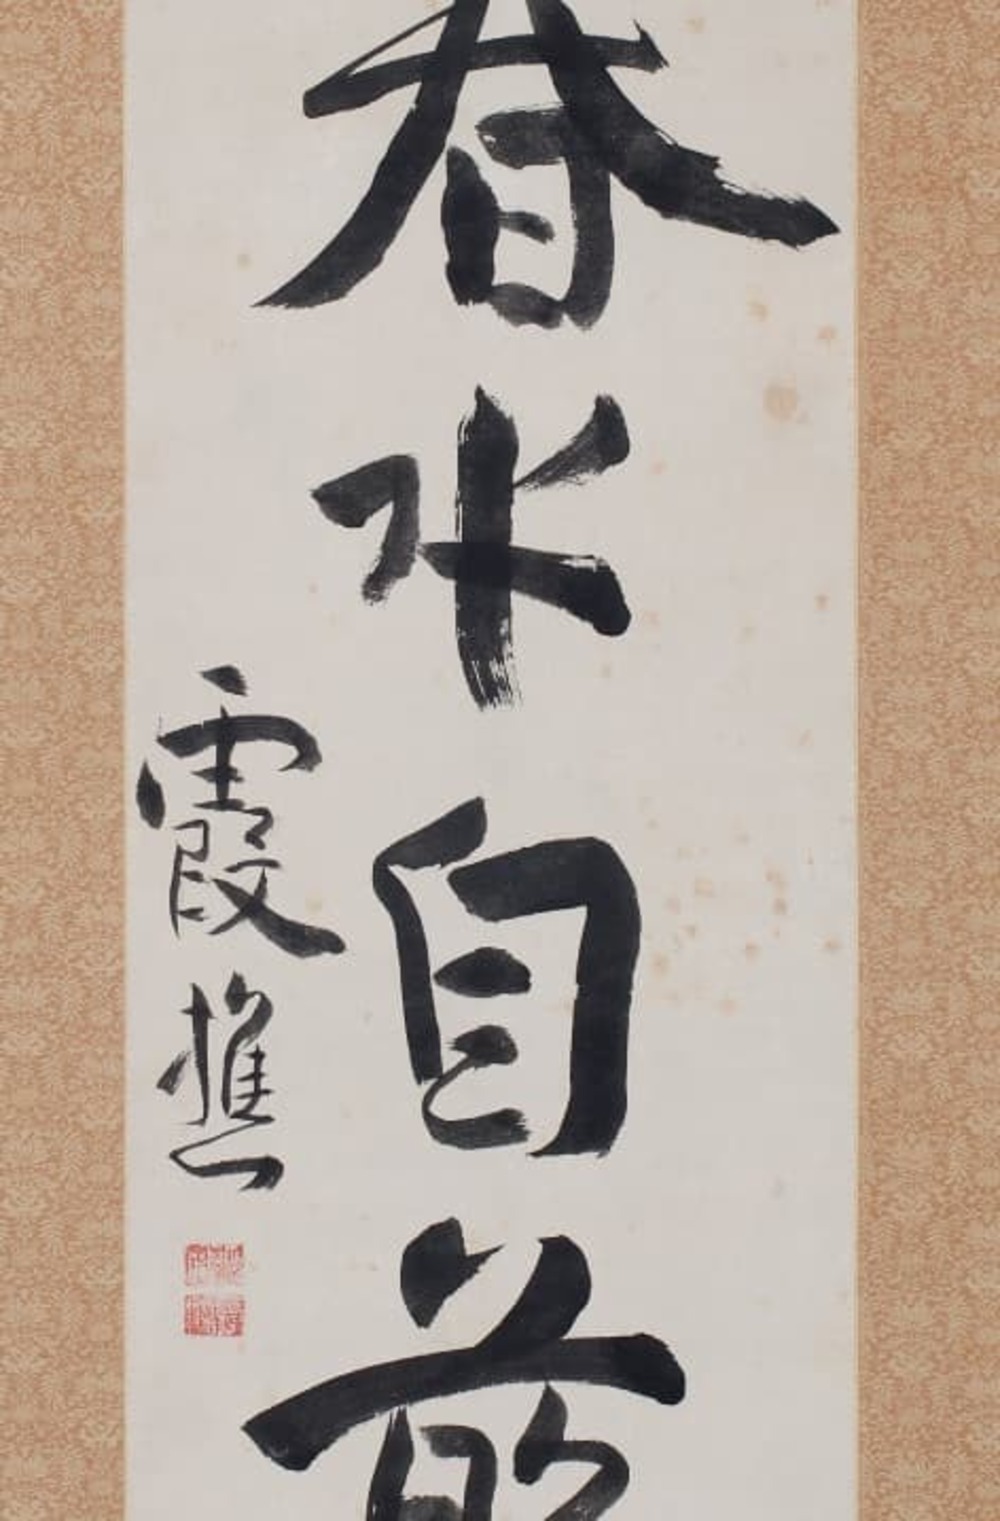 春水自前
霞樵